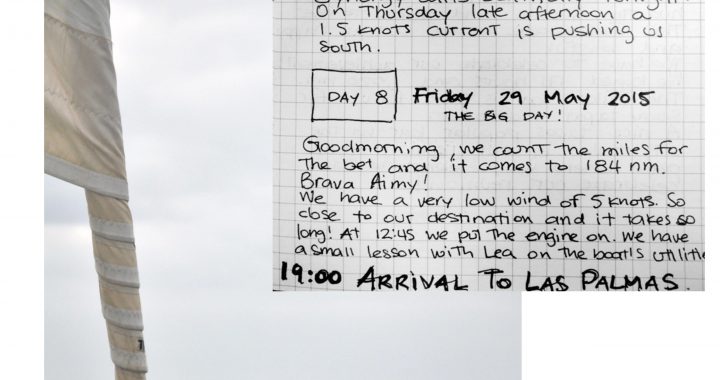 On Thursday late afternoon a
1.5 knots current is pushing us
south.
DAY 8 Friday 29 May 2015
THE BIG DAY!
Goodmorning, we count the miles for
the bet and it comes to 184 nm.
Brava Aimy!
We have a very low wind of 5 knots. So
close to our destination and it takes so
long! At 12:45 we put the engine on. We have
a small lesson with Lea on the boat's utilitie
19:00 ARRIVAL TO LAS PALMAS.